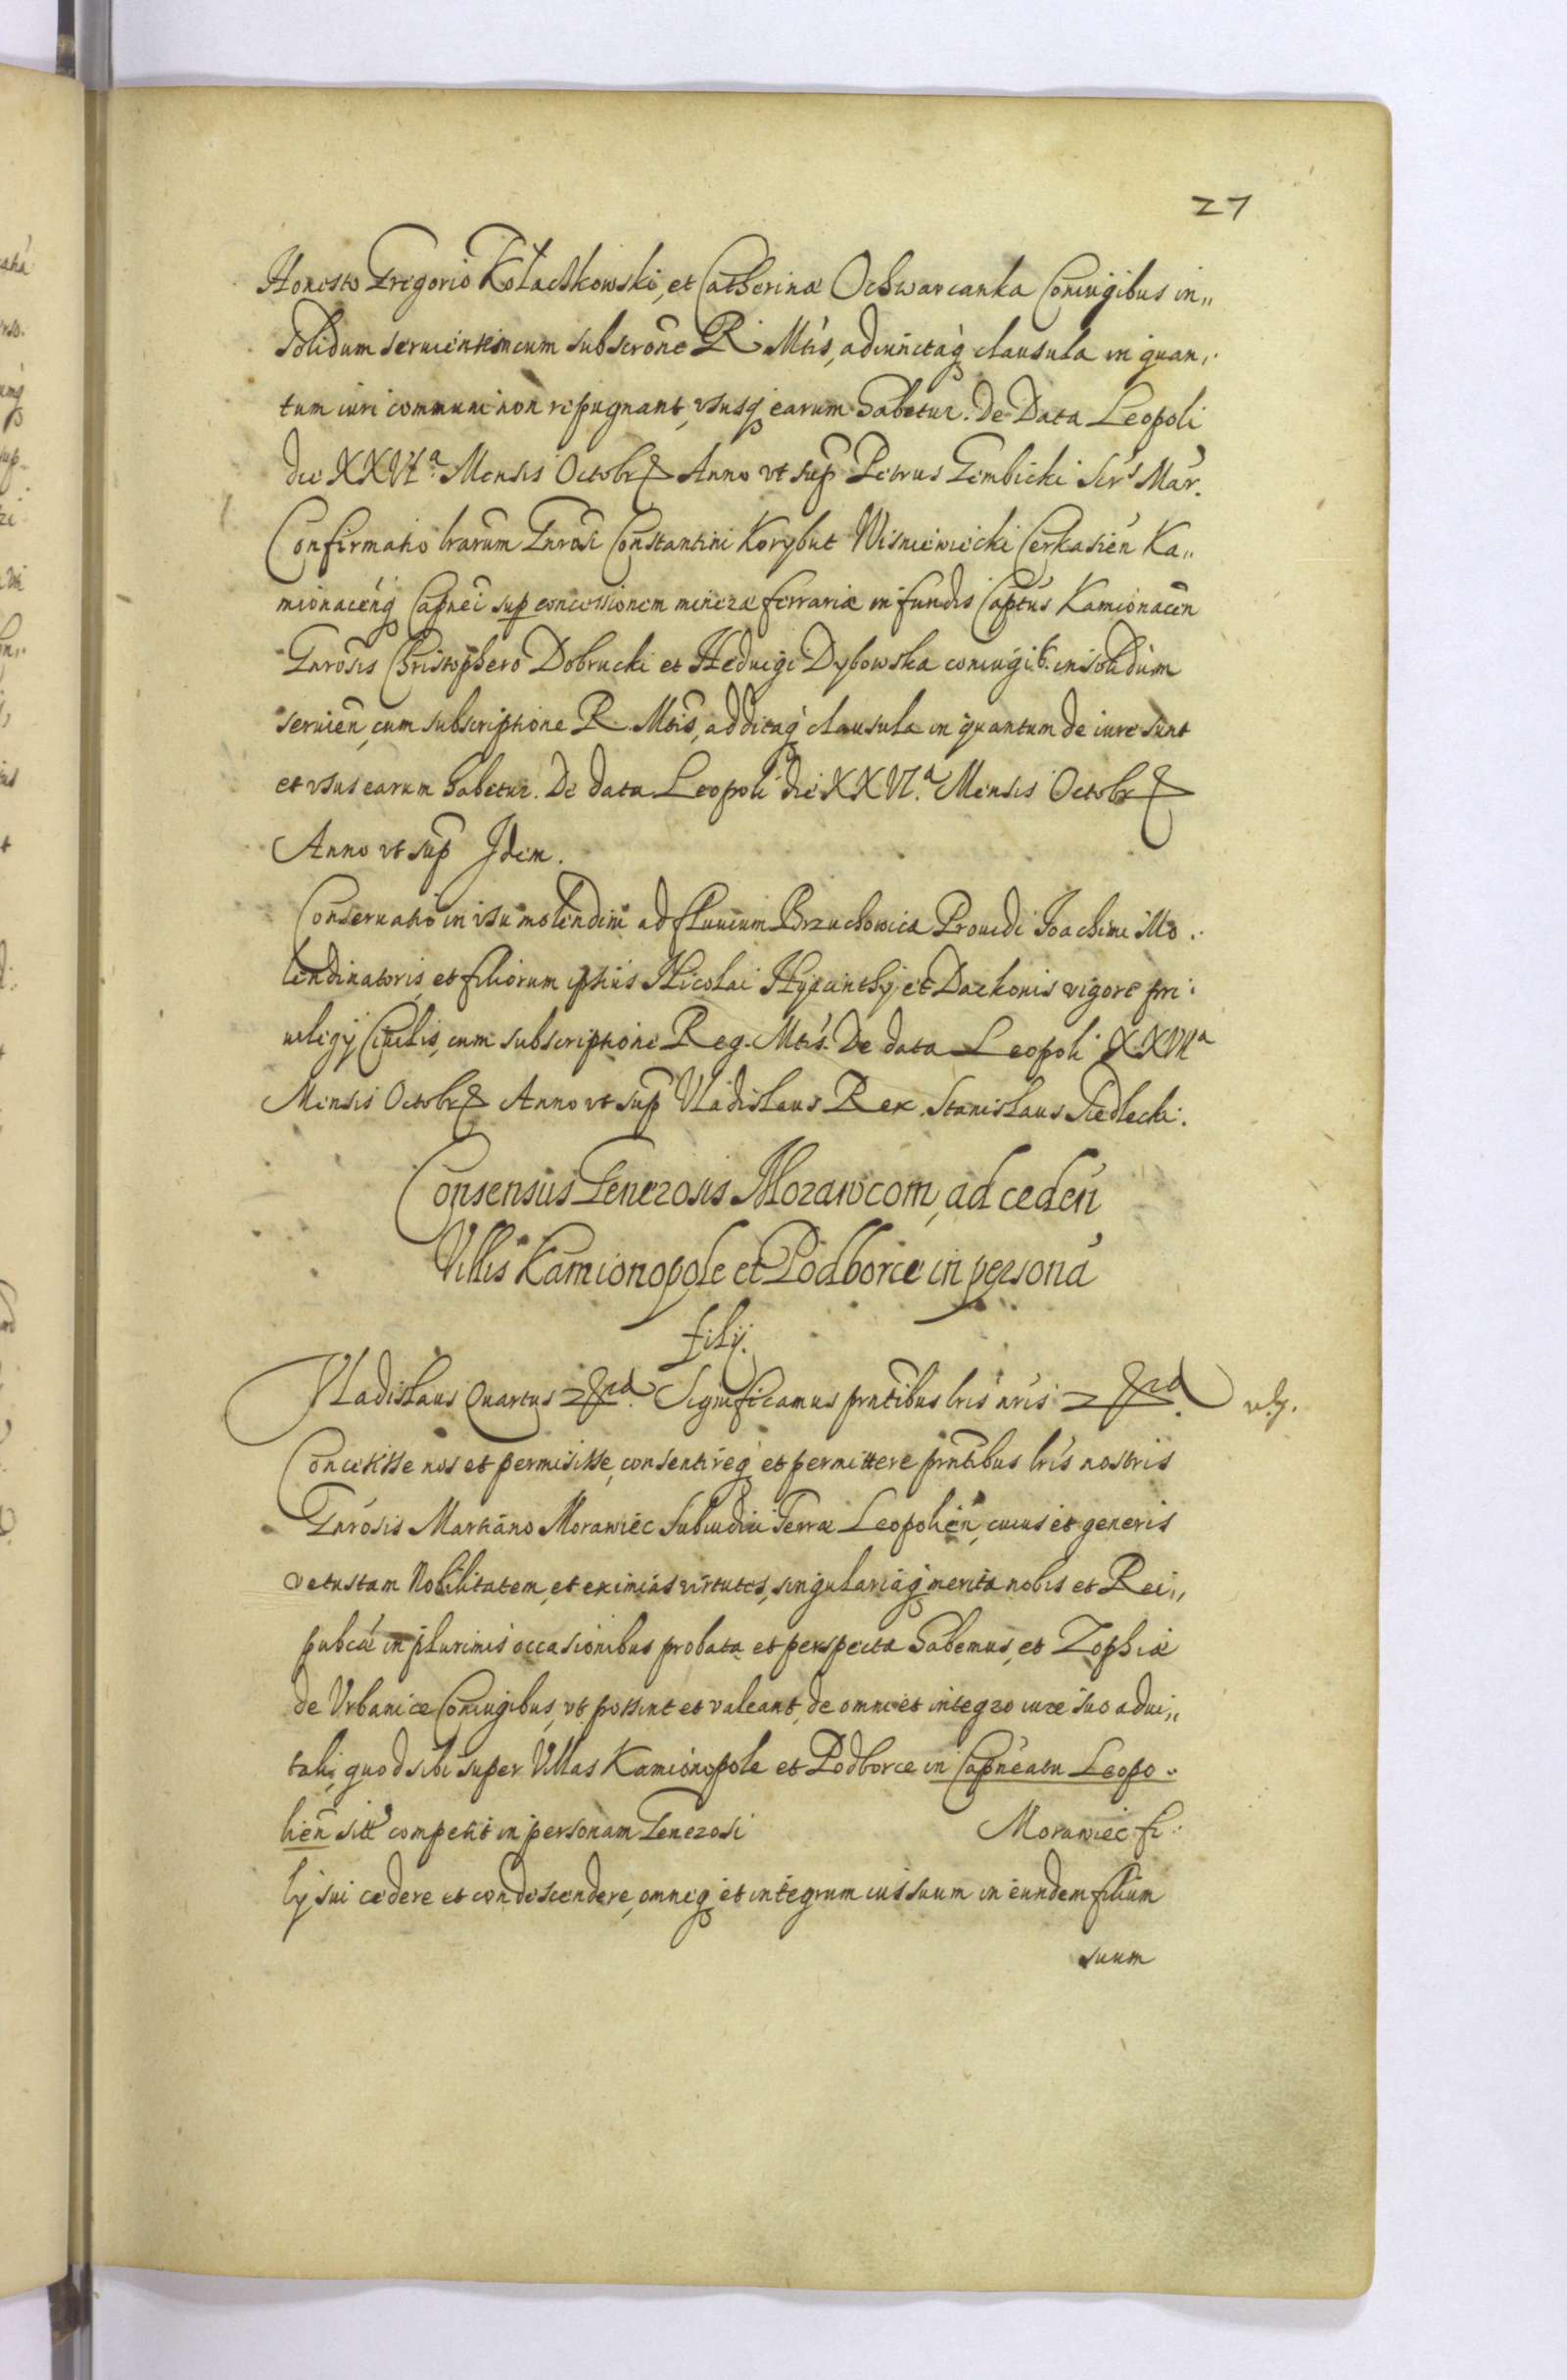 27
Honesto Gregorio Kołaczkowski, et Catherinæ Ochwarcanka Coniugibus in„
solidum seruientem cum subscrone R. Mtis, adiunctaq clausula in quan„
tum iuri communi non repugnant, ususq earum habetur. De Data Leopoli
die XXVIa Mensis Octobr Anno vt sup Petrus Gembicki Scrs Mar.
Confirmatio lrarum Gnrosi Constantini Korybut Wisniewiecki Cerkasien Ka„
mionacenq Capnei sup concessionem mineræ ferrariæ in fundis Captus Kamionacen
Gnrosis Christophero Dobrucki et Heduigi Dybowska coniugib. insolidum
seruien, cum subscriptione R. Mtis, additaq clausula in quantum de iure sunt
et usus earum habetur. De data Leopoli die XXVI.a Mensis Octobr
Anno vt sup Idem.
Conseruatio in usu molendini ad fluuium Brzuchowica Prouidi Joachimi Mo„
lendinatoris, et filiorum ipsius Nicolai Hyacinthy, et Daczkonis vigore pri„
uilegij Ciuilis, cum subscriptione Reg. Mtis. De data Leopoli XXVIIa
Mensis Octobr Anno vt sup Vladislaus Rex. Stanislaus Siedlecki.
Consensus Generosis Morawcom, ad ceden
Villis Kamionopole et Podborce in persona
filij.
Vladislaus Quartus Significamus prntibus lris nris
Concessisse nos et permisisse, consentireq et permittere prntibus lris nostris
Gnrosis Martiano Morawiec Subiudici Terræ Leopolien, cuius et generis
vetustam Nobilitatem, et eximias virtutes, singulariaq merita nobis et Rei„
pubcæ in plurimis occasionibus probata et perspecta habemus, et Zophiæ
de Urbanice Coniugibus, vt possint et valeant, de omni et integro iure suo adui„
tali, quod sibi super Villas Kamionopole et Podborce in Capneatu Leopo„
lien sitt competit in personam Generosi Morawiec fi„
lij sui cedere et condescendere, omneq et integrum ius suum in eundem filium
suum